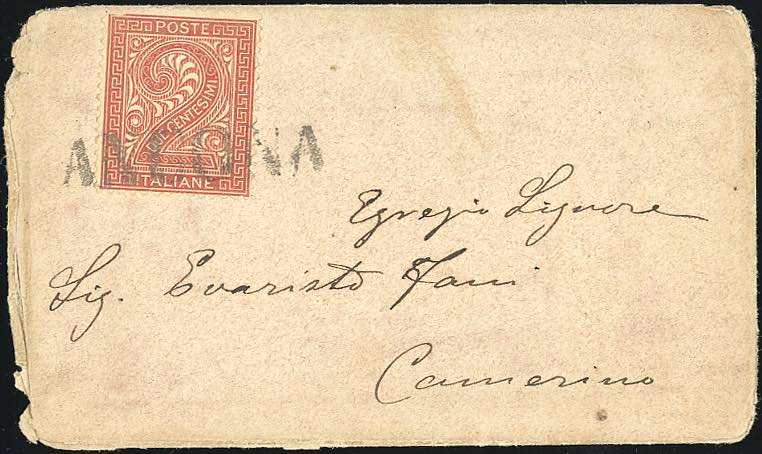 POSTE
2
DUE CENTESIMI
ITALIANE
ANCONA
Egregio Signore
Sig. Evaristo Fani
Camerino